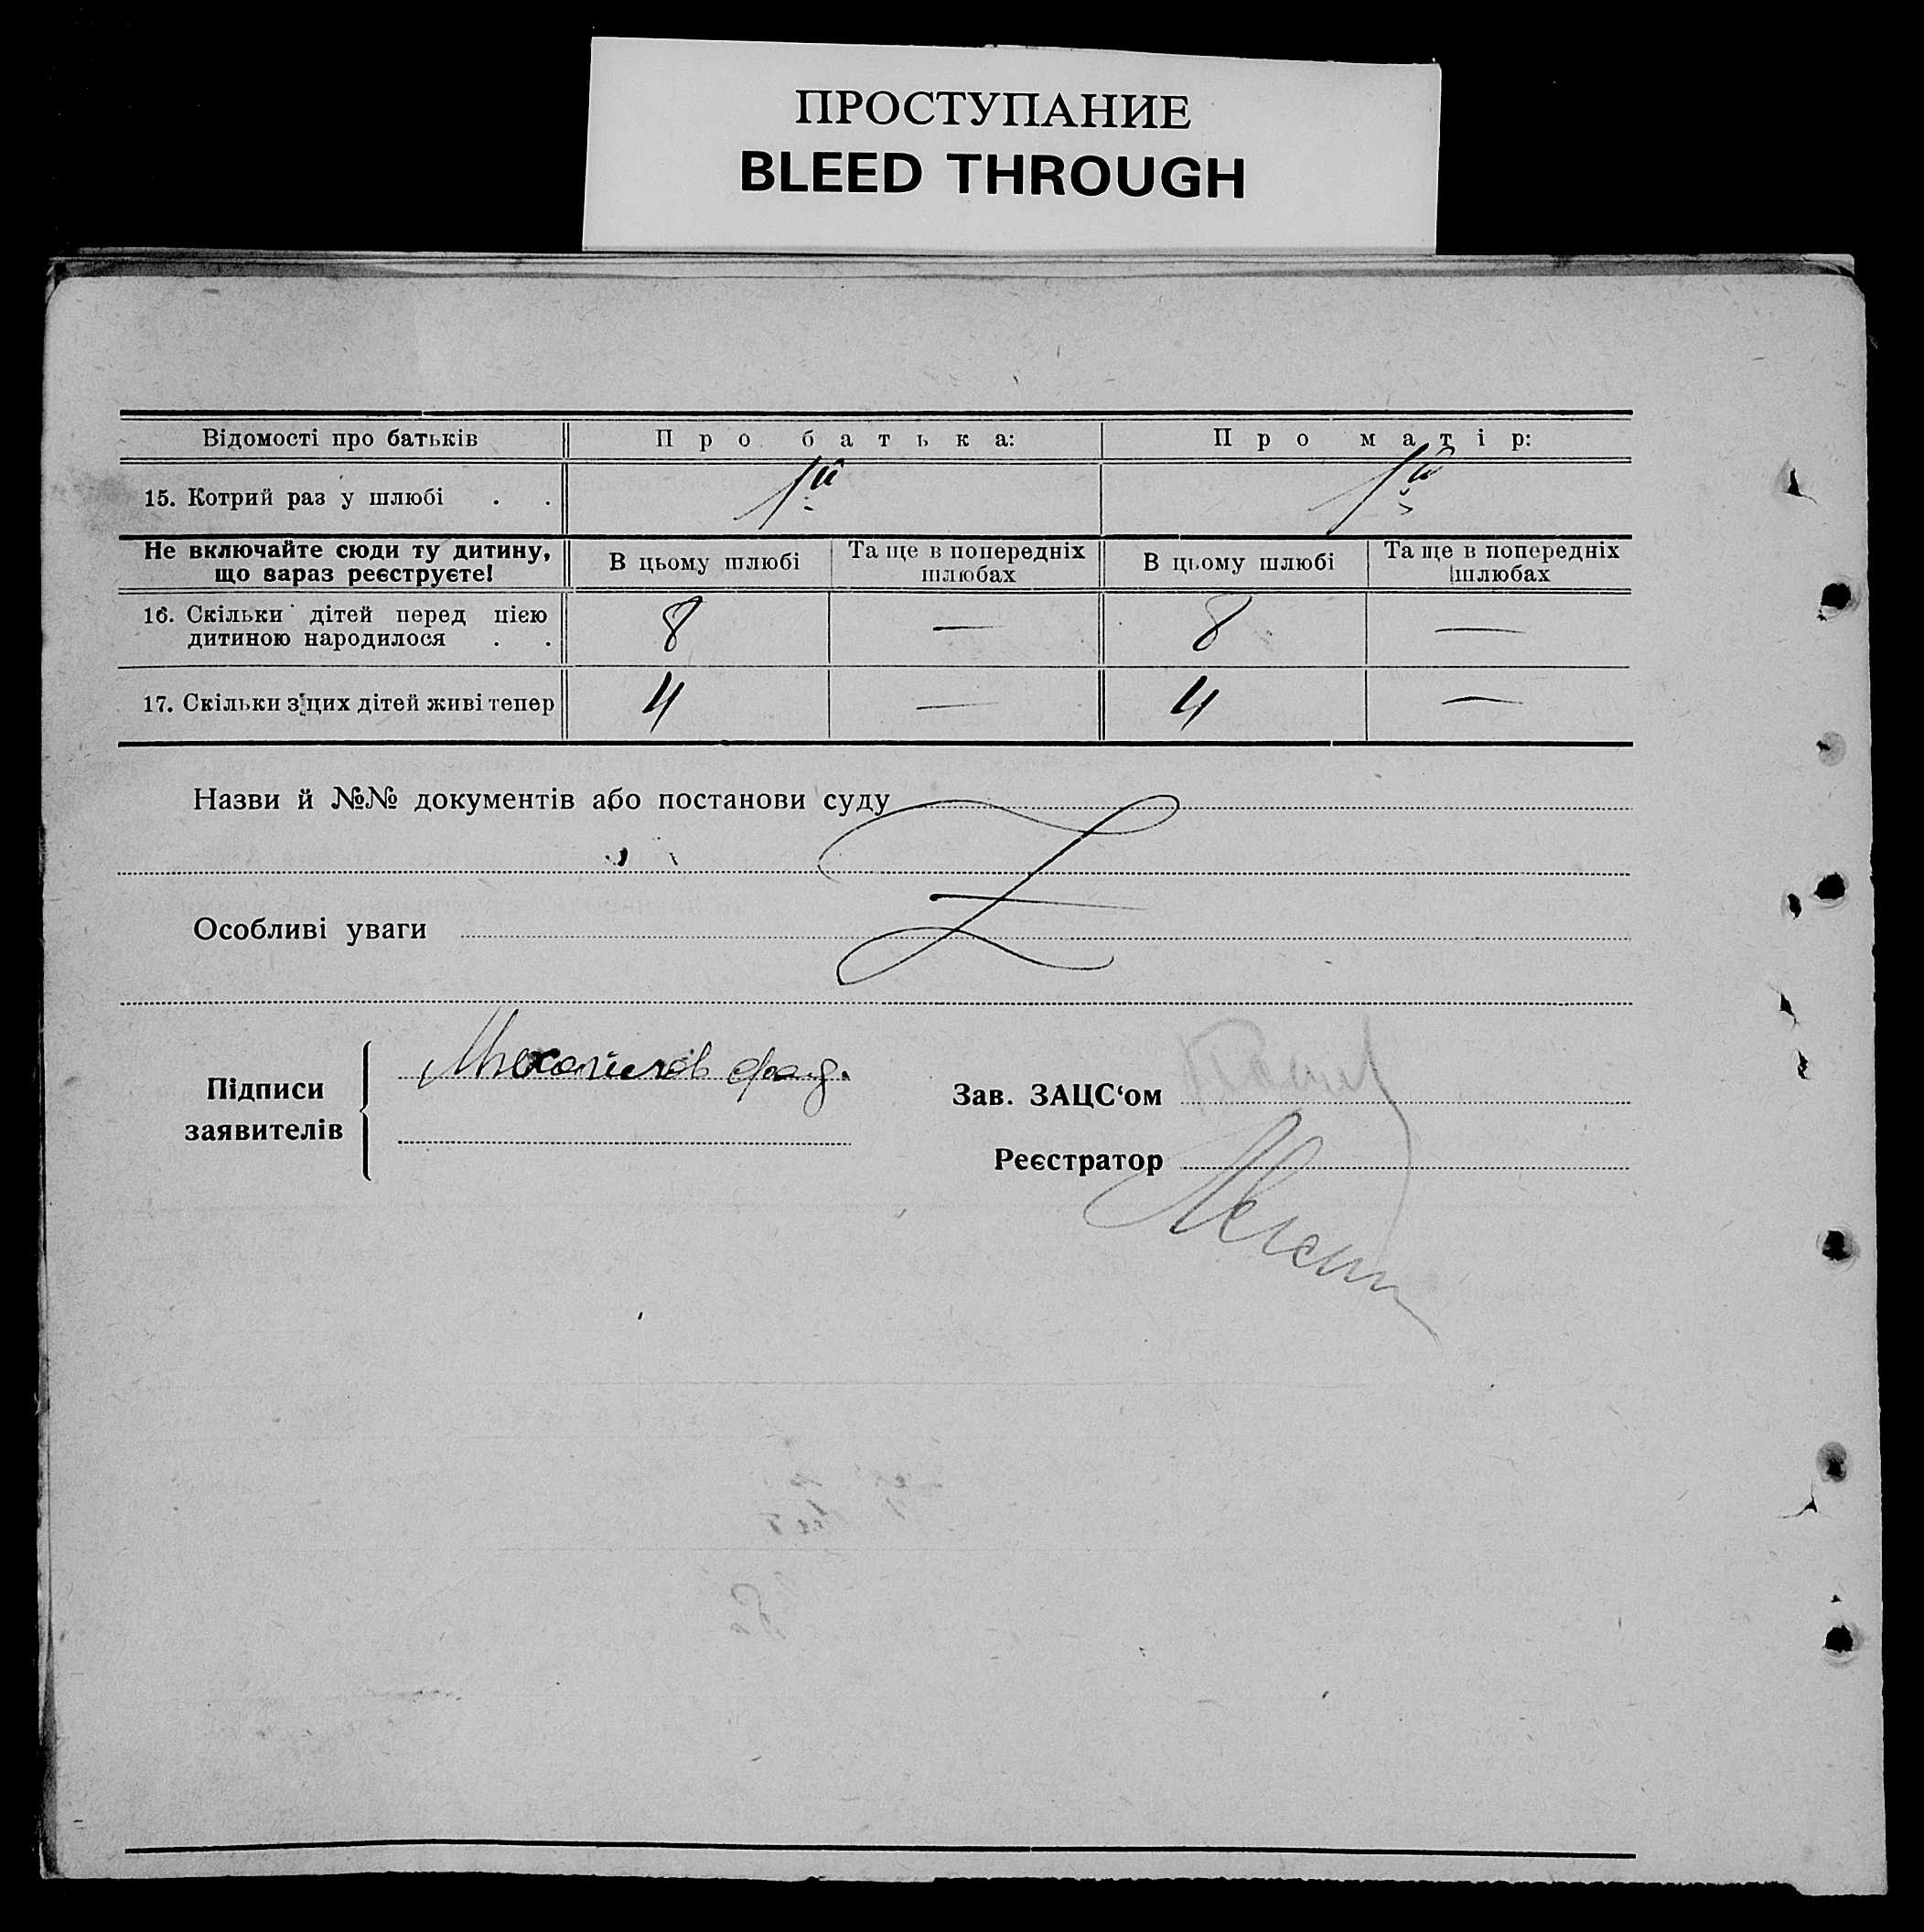 ПРОСТУПАНИЕ
BLEED THROUGH
Відомості про батьків Про батька: Про матір:
15. Котрий раз у шлюбі . . 1й 1й
Не включайте сюди ту дитину, що зараз реєструєте! В цьому шлюбі Та ще в попередніх шлюбах В цьому шлюбі Та ще в попередніх шлюбах
16. Скільки дітей перед цією
дитиною народилося . . 8 — 8 —
17. Скільки з цих дітей живі тепер 4 — 4 —
Назви й №№ документів або постанови суду
Особливі уваги
Підписи
заявителів
Михайлов
Зав. ЗАЦС‘ом
Реєстратор